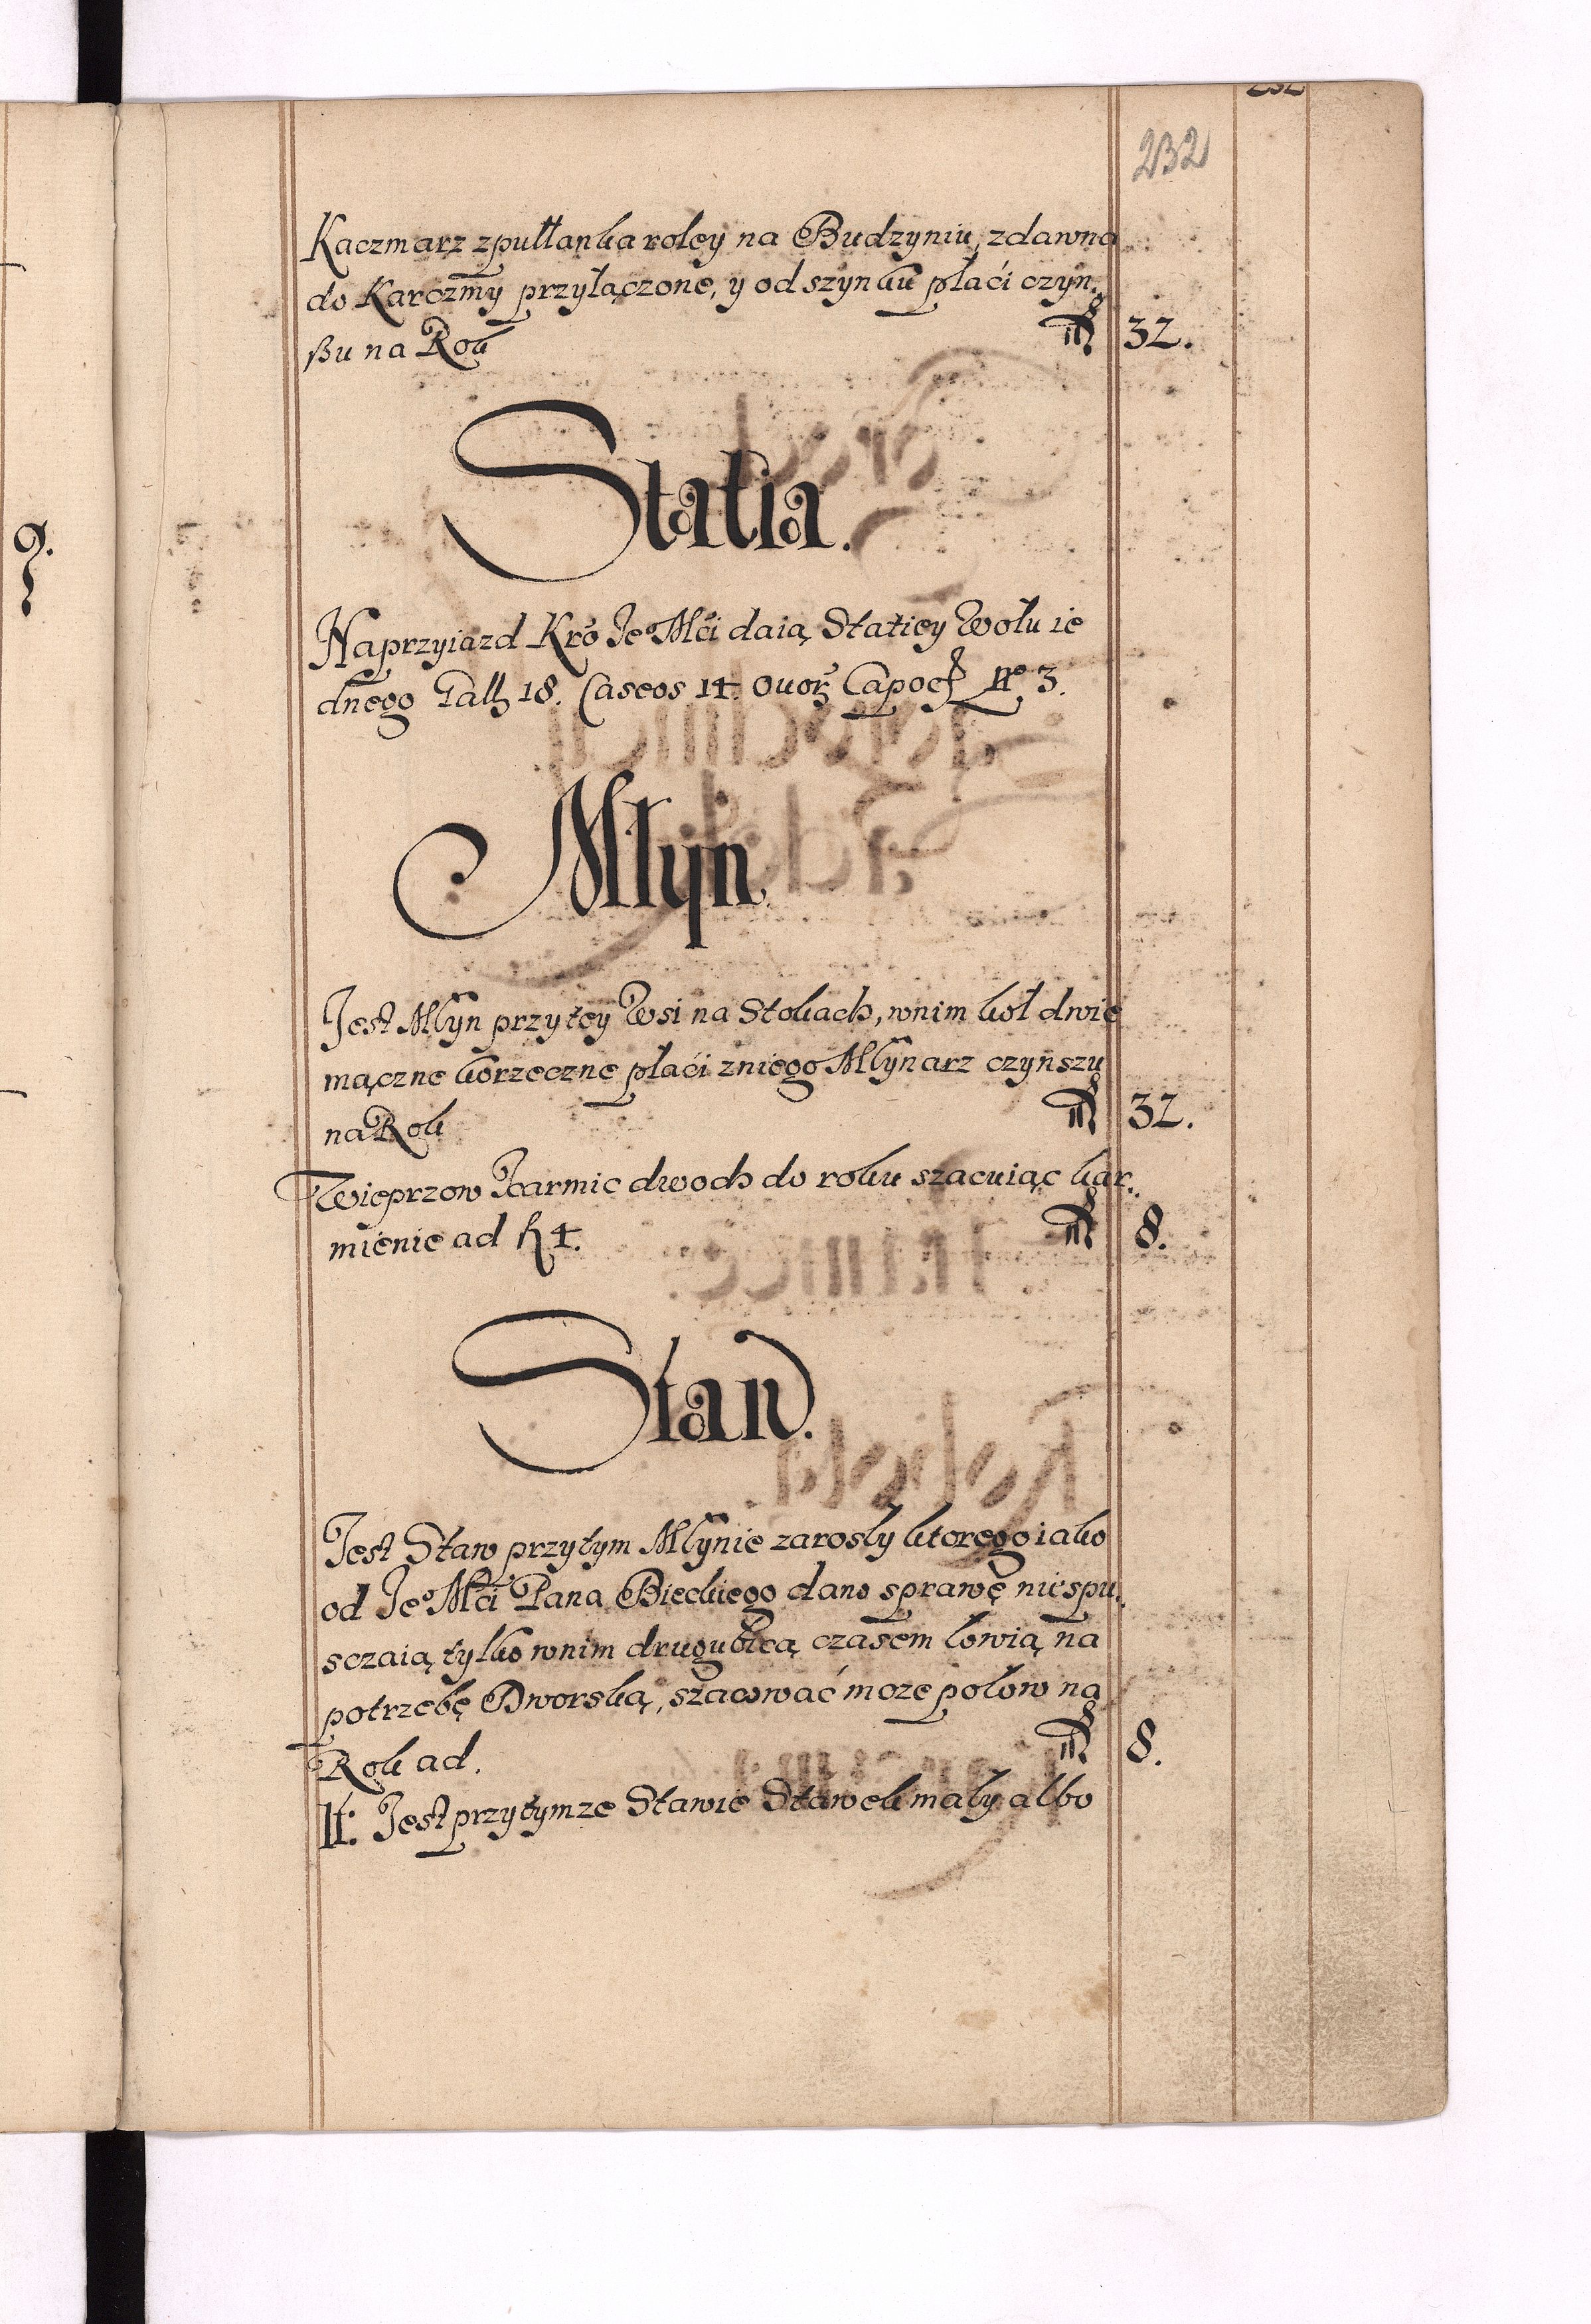 232
Kaczmarz zpułłanka roley na Budzyniu, zdawna
do Karczmy przyłączone, y od szynku płaći czyn,
ßu na Rok 32.
Statia.
Na przyiazd Kro Je Mći daią Statiey Wołu ie
dnego Gall 18. Caseos 14. Ouor Capoc No 3.
Młyn.
Jest Młyn przy tey Wsi na Stokach, wnim kół dwie
mączne korzeczne płaći zniego Młynarz czynszu
na Rok 32.
Wieprzow Karmic dwoch do roku szacuiąc kar,
mienie ad fl 4. 8.
Staw.
Jest Staw przytym Młynie zarosły ktorego iako
od Je Mći Pana Bieckiego dano sprawę nie spu,
sczaią tylko wnim drugubicą czasem łowią na
potrzebę Dworską, szacować moze połow na
Rok ad. 8.
It: Jest przytymze Stawie Stawek mały albo
9.